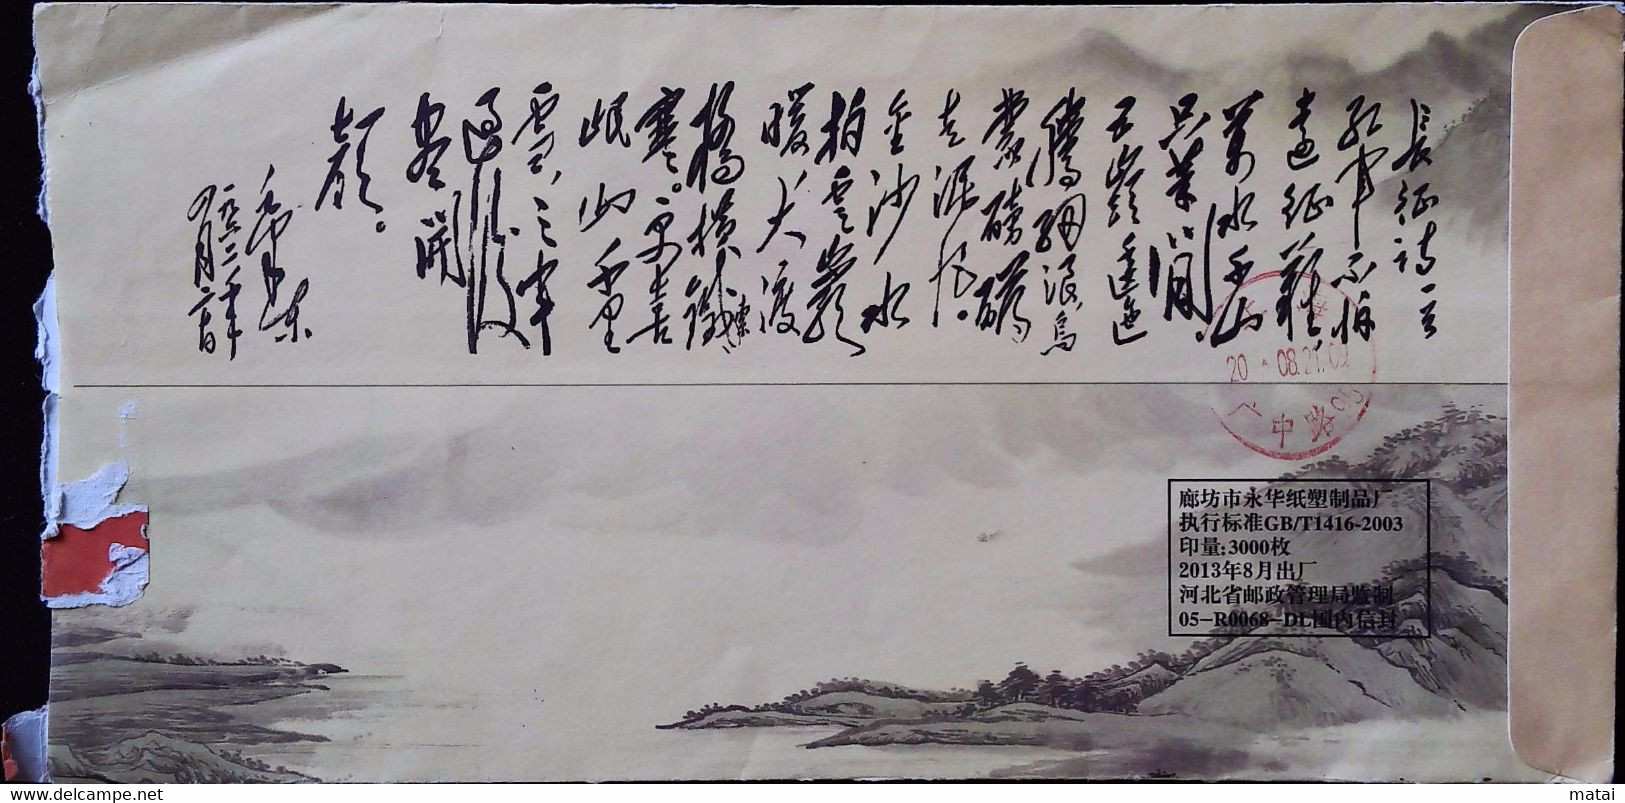 長征詩一首
紅軍不怕
遠征難，
萬水千山
只等閒。
五嶺逶迤
騰細浪，烏
蒙磅礴
走泥丸。
金沙水
拍雲崖
暖，大渡
橋橫鐵索
寒。更喜
岷山千里
雪，三軍
過後
盡開
顏。
毛澤東
一九六二年
四月二十日
08.21.09
中路
廊坊市永华纸塑制品厂
执行标准GB/T1416-2003
印量:3000枚
2013年8月出厂
河北省邮政管理局监制
05-R0068-DL国内信封
delcampe.net
matai